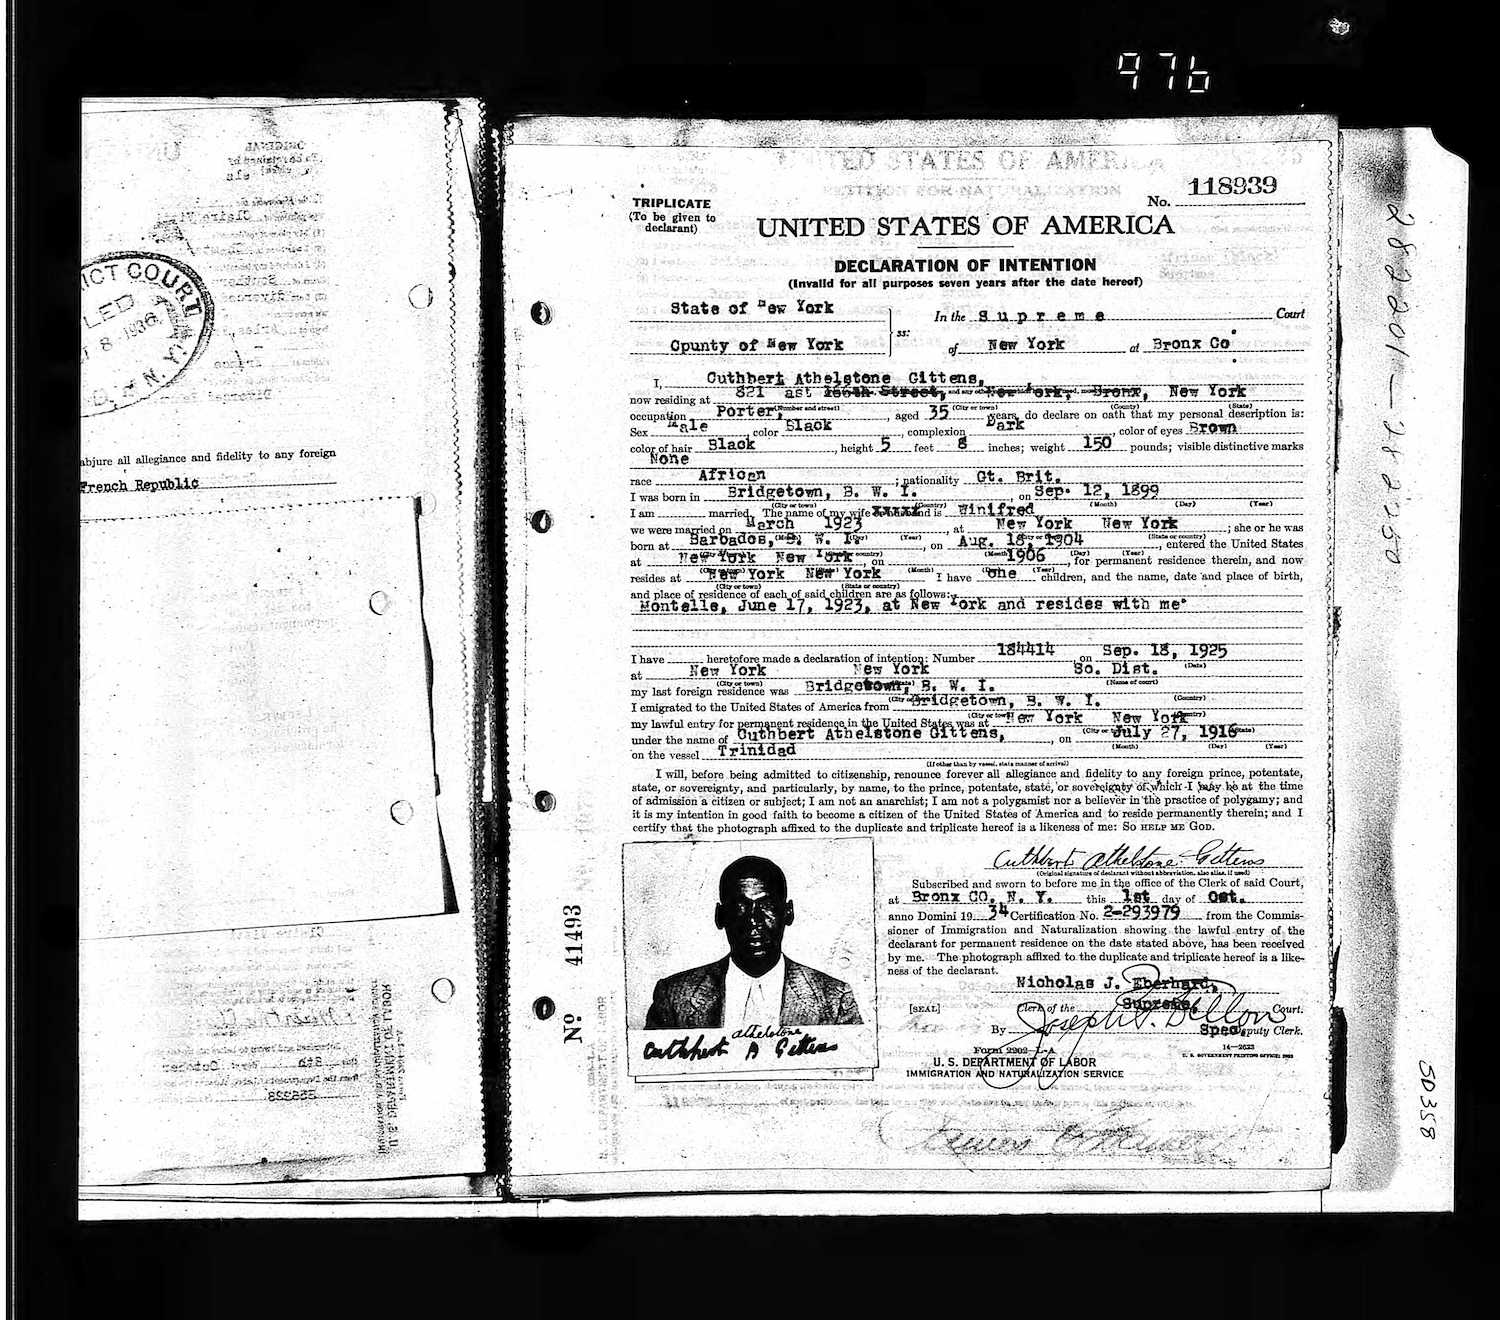 976
ICT COURT
LED
8-1936
N.Y.
abjure all allegiance and fidelity to any foreign
French Republic
282201-282250
50358
No. 118939
TRIPLICATE
(To be given to
declarant)
UNITED STATES OF AMERICA
DECLARATION OF INTENTION
(Invalid for all purposes seven years after the date hereof)
State of New York
In the Supreme Court
ss:
County of New York of New York at Bronx Co
I, Cuthbert Athelstone Gittens,
now residing at 821 East 166th Street, New York, Bronx, New York
(Number and street) (City or town) (County) (State)
occupation Porter, aged 35 years, do declare on oath that my personal description is:
Sex Male color Black, complexion Dark, color of eyes Brown
color of hair Black, height 5 feet 8 inches; weight 150 pounds; visible distinctive marks
None
race African; nationality Gt. Brit.
I was born in Bridgetown, B. W. I., on Sep. 12, 1899
(City or town) (Country) (Month) (Day) (Year)
I am married. The name of my wife or husband is Winifred
we were married on March 1923, at New York New York; she or he was
(Month) (Day) (Year) (City or town) (State or country)
born at Barbados, B. W. I., on Aug. 18, 1904, entered the United States
(City or town) (State or country) (Month) (Day) (Year)
at New York New York, on 1906, for permanent residence therein, and now
(City or town) (State) (Month) (Day) (Year)
resides at New York New York I have one children, and the name, date and place of birth,
(City or town) (State or country)
and place of residence of each of said children are as follows:
Montelle, June 17, 1923, at New York and resides with me
I have heretofore made a declaration of intention: Number 184414 on Sep. 18, 1925
at New York New York So. Dist. (Date)
(City or town) (State) (Name of court)
my last foreign residence was Bridgetown, B. W. I.
(City or town) (Country)
I emigrated to the United States of America from Bridgetown, B. W. I.
(City or town) (Country)
my lawful entry for permanent residence in the United States was at New York New York
(City or town) (State)
under the name of Cuthbert Athelstone Gittens, on July 27, 1916
(Month) (Day) (Year)
on the vessel Trinidad
(If other than by vessel, state manner of arrival)
I will, before being admitted to citizenship, renounce forever all allegiance and fidelity to any foreign prince, potentate,
state, or sovereignty, and particularly, by name, to the prince, potentate, state, or sovereignty of which I may be at the time
of admission a citizen or subject; I am not an anarchist; I am not a polygamist nor a believer in the practice of polygamy; and
it is my intention in good faith to become a citizen of the United States of America and to reside permanently therein; and I
certify that the photograph affixed to the duplicate and triplicate hereof is a likeness of me: SO HELP ME GOD.
Cuthbert Athelstone Gittens
(Original signature of declarant without abbreviation, also alias, if used)
Subscribed and sworn to before me in the office of the Clerk of said Court,
at Bronx CO, N. Y. this 1st day of Oct.
anno Domini 1934 Certification No. 2-293979 from the Commis-
sioner of Immigration and Naturalization showing the lawful entry of the
declarant for permanent residence on the date stated above, has been received
by me. The photograph affixed to the duplicate and triplicate hereof is a like-
ness of the declarant.
Nicholas J. Eberhard,
[SEAL] Clerk of the Supreme Court.
By Joseph S. Dillon Spec. Deputy Clerk.
Form 2202-L-A
14-2623
U. S. DEPARTMENT OF LABOR
U. S. GOVERNMENT PRINTING OFFICE
IMMIGRATION AND NATURALIZATION SERVICE
Athelstone
Cuthbert A Gittens
No 41493